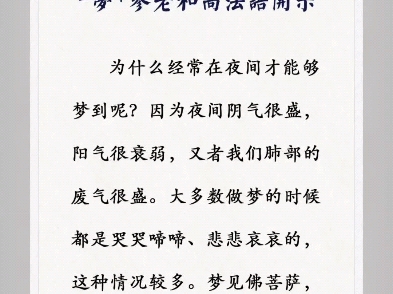 「夢」夢老和尚法語開示
为什么经常在夜间才能够
梦到呢？因为夜间阴气很盛，
阳气很衰弱，又者我们肺部的
废气很盛。大多数做梦的时候
都是哭哭啼啼、悲悲哀哀的，
这种情况较多。梦见佛菩萨，